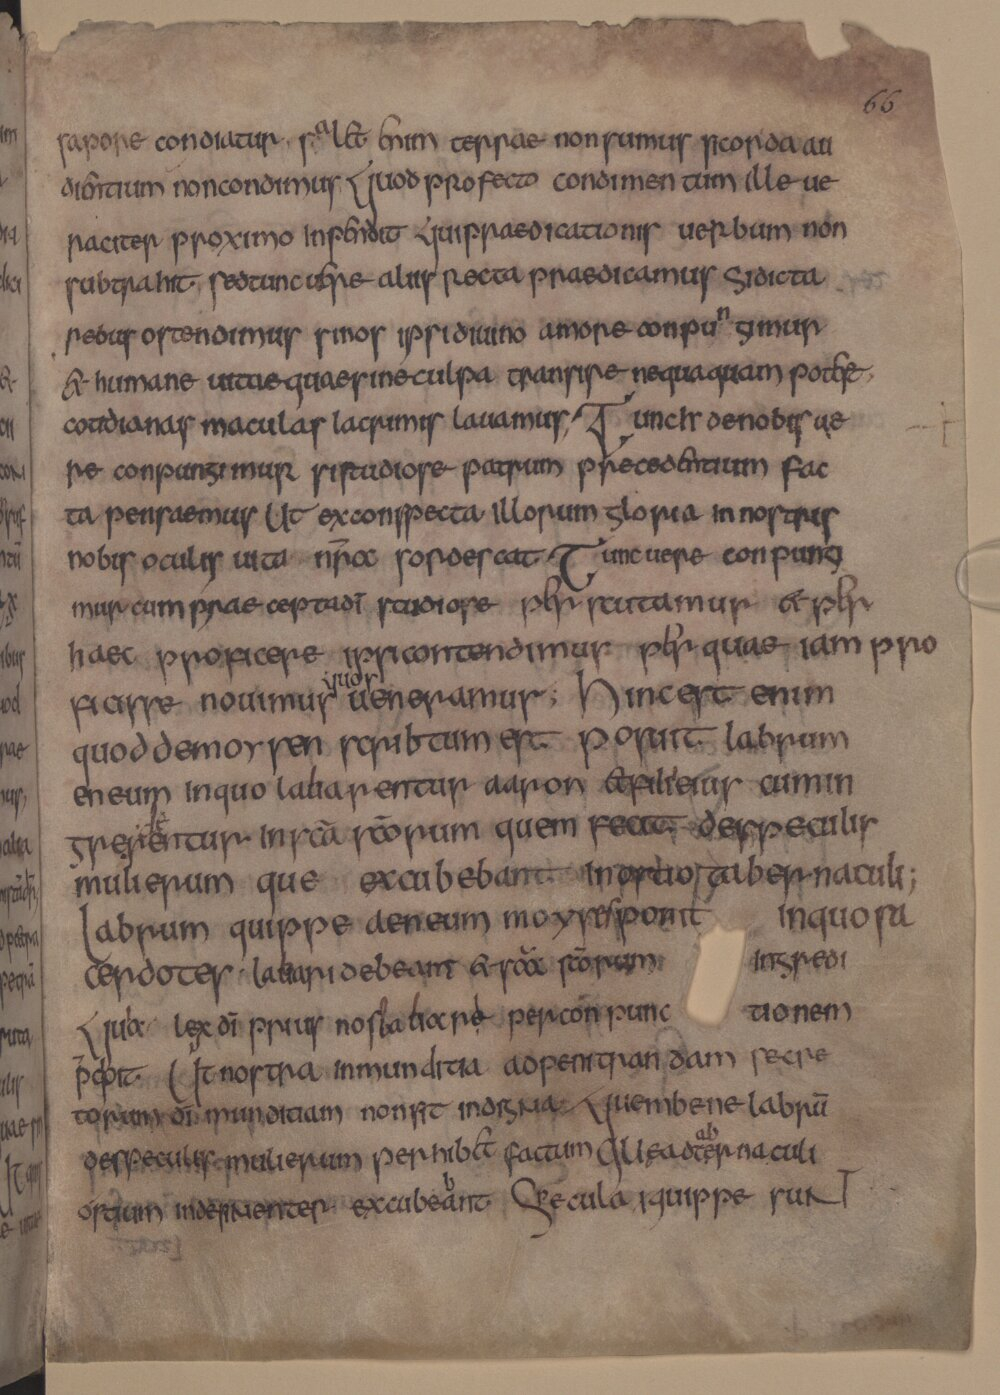 66
sapore condiatur sal & enim terrae non sumus si corda au
dientium non condimus Quod profecto condimentum ille ue
raciter proximo inpendit Qui praedicationis uerbum non
subtrahit, sed tunc uere aliis recta praedicamus Si dicta
rebus ostendimus si nos ipsi diuino amore conpungimur
& humane uitae quae sine culpa transire nequaquam potest,
cotidianas maculas lacrimis lauamus, Tunc de nobis ue
re conpungimur si studiose patrum precedentium fac
ta pensaemus Ut ex conspecta illorum gloria in nostris
nobis oculis uita nr̄a sordescat Tunc uere conpungi
mur cum praecepta dī studiose scrutamur &
haec proficere ipsi contendimus quae iam pro
ficisse nouimus quos ueneramur; Hinc est enim
quod de moysen scribtum est posuit labrum
eneum in quo labarentur aaron & filii eius cum in
grederentur in sc̄a sc̄orum quem fecit despeculis
mulierum que excubebant in ostio tabernaculi;
Labrum quippe aeneum moyses ponit in quo sa
cerdotes labari debeant & sc̄a sc̄orum ingredi
Quia lex dī prius nos labare per conpunc tionem
p̄cipit Ut nostra inmunditia ad penitrandam secre
torum dī munditiam non sit indigna Quem bene labrū
despeculis mulierum perhib& factum Quae ad tabernaculi
ostium indesinenter excubabant Specula quippe sunt